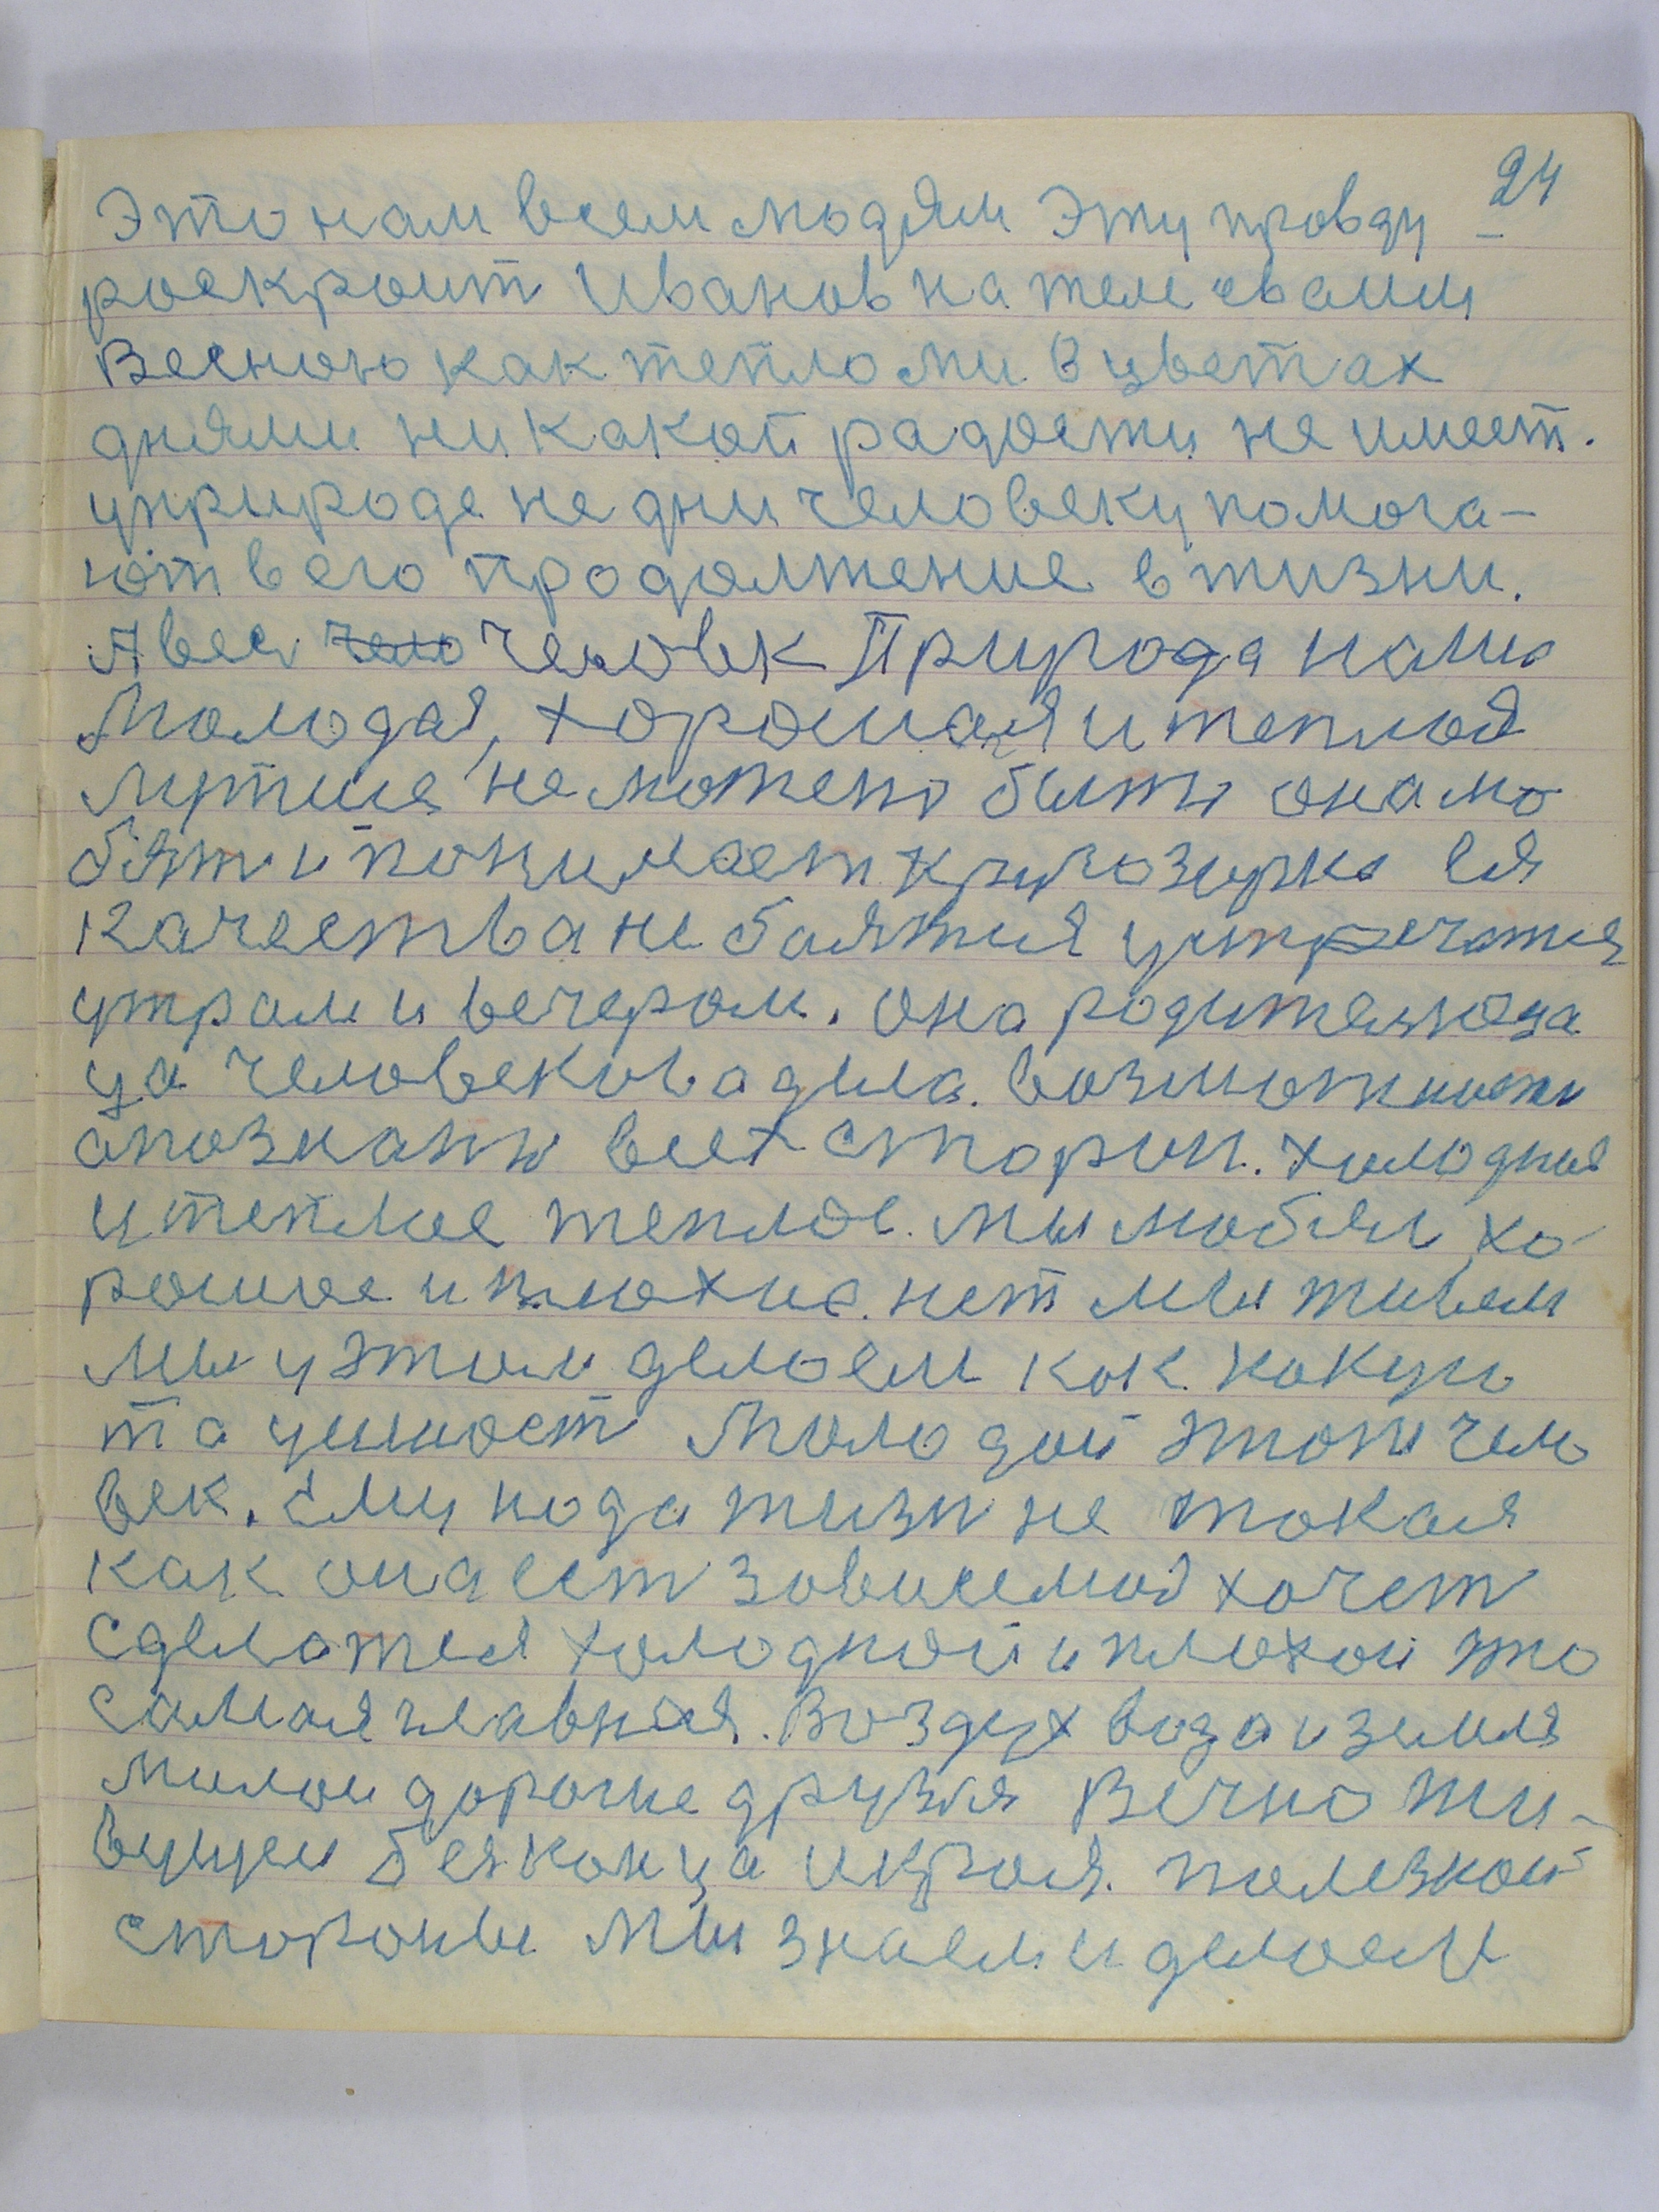 24
Это нам всем людям эту провду
роскроит Иванов на теле сваим
Весною как тепломи в цветах
днями ни какой радости не имеет.
уприроде не дни человеку помога-
ют в его продолжение в жизни.
А вся чело человек Природа нами
Молодая, хорошая и теплая
лутше не может быть она лю
бят и понимает кругозирно ея
качества не баятся устречатся
утром и вечером. она родительюца
ца человекова дела. возможность
опознать всех сторон. холодная
и теплое теплое. мы любим хо
рошое и плохие. нет мы живем
мы у этом делоем как какую
та ценност Молодой этот чело
век. Ему нода жизн не такая
как она ест зовисемая хочет
сделотся холодной и плохой это
самая главная. Воздух вода и земля
милои дорогие друзя Вечно жи-
вущеи без конца и кроя. полезной
стороны мы знаем и делоем